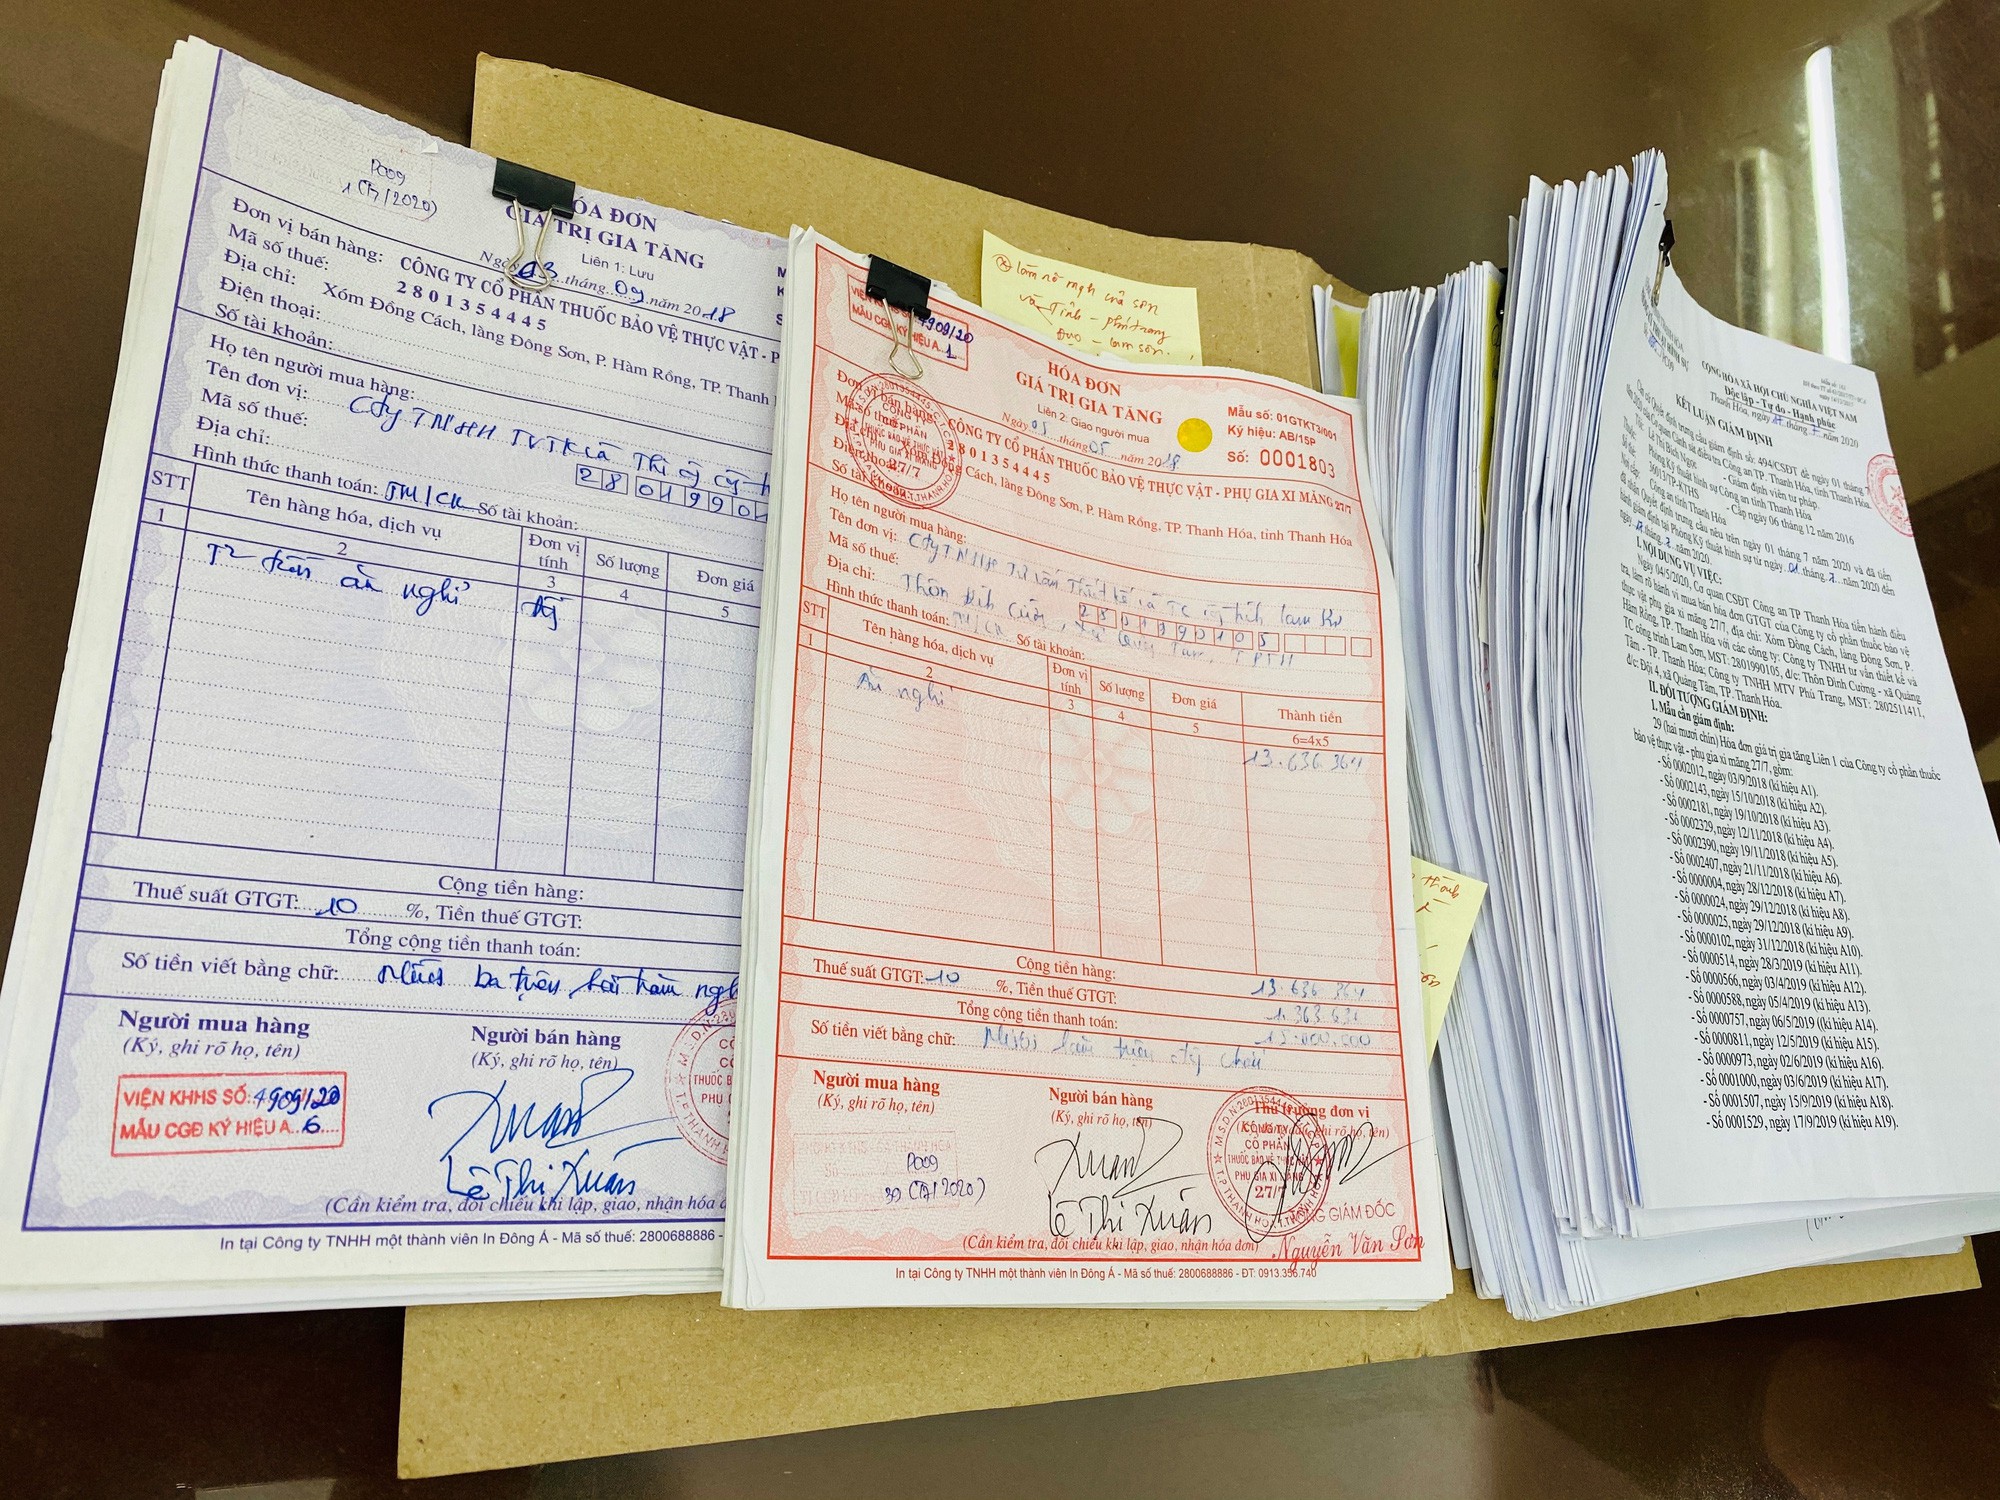 P009
1 (7/2020)
HÓA ĐƠN
GIÁ TRỊ GIA TĂNG
Liên 1: Lưu
Ngày 03 tháng 09 năm 2018
Đơn vị bán hàng: CÔNG TY CỔ PHẦN THUỐC BẢO VỆ THỰC VẬT - PHỤ
Mã số thuế: 2801354445
Địa chỉ: Xóm Đồng Cách, làng Đông Sơn, P. Hàm Rồng, TP. Thanh
Điện thoại:
Số tài khoản:
Họ tên người mua hàng:
Tên đơn vị: Cty TNHH TVTK và
Mã số thuế: 2801990
Địa chỉ:
Hình thức thanh toán: TM/CK Số tài khoản:
STT Tên hàng hóa, dịch vụ Đơn vị tính Số lượng Đơn giá
1 2 3 4 5
ăn nghỉ
Cộng tiền hàng:
Thuế suất GTGT: 10 %, Tiền thuế GTGT:
Tổng cộng tiền thanh toán:
Số tiền viết bằng chữ: Mười ba triệu hai trăm
Người mua hàng Người bán hàng
(Ký, ghi rõ họ, tên) (Ký, ghi rõ họ, tên)
VIỆN KHHS SỐ: 4909/20
MẪU CGĐ KÝ HIỆU A 6
Lê Thị Xuân
(Cần kiểm tra, đối chiếu khi lập, giao, nhận hóa
In tại Công ty TNHH một thành viên In Đông Á - Mã số thuế: 2800688886 -
làm rõ mqh của sơn
và Tỉnh - phú trang
- lam sơn
4909/20
MẪU CGĐ KÝ HIỆU A 1
HÓA ĐƠN
GIÁ TRỊ GIA TĂNG
Liên 2: Giao người mua
Ngày 05 tháng 05 năm 2018
Mẫu số: 01GTKT3/001
Ký hiệu: AB/15P
Số: 0001803
CÔNG TY CỔ PHẦN THUỐC BẢO VỆ THỰC VẬT - PHỤ GIA XI MĂNG 27/7
2801354445
Cách, làng Đông Sơn, P. Hàm Rồng, TP. Thanh Hóa, tỉnh Thanh Hóa
Số tài khoản:
Họ tên người mua hàng:
Tên đơn vị: Cty TNHH Tư vấn Thiết kế và TC công trình Lam Sơn
Mã số thuế: 2801990105
Địa chỉ: Thôn Đình Cường, xã Quảng Tâm, TPTH
Hình thức thanh toán: TM/CK Số tài khoản:
STT Tên hàng hóa, dịch vụ Đơn vị tính Số lượng Đơn giá Thành tiền
1 2 3 4 5 6=4x5
Ăn nghỉ 13.636.364
Cộng tiền hàng: 13.636.364
Thuế suất GTGT: 10 %, Tiền thuế GTGT: 1.363.636
Tổng cộng tiền thanh toán: 15.000.000
Số tiền viết bằng chữ: Mười lăm triệu đồng chẵn
Người mua hàng Người bán hàng Thủ trưởng đơn vị
(Ký, ghi rõ họ, tên) (Ký, ghi rõ họ, tên) (Ký, ghi rõ họ, tên)
P009
30 (7/2020)
Lê Thị Xuân
CÔNG TY
CỔ PHẦN
THUỐC BẢO VỆ THỰC VẬT
PHỤ GIA XI MĂNG
27/7
TỔNG GIÁM ĐỐC
Nguyễn Văn Sơn
(Cần kiểm tra, đối chiếu khi lập, giao, nhận hóa đơn)
In tại Công ty TNHH một thành viên In Đông Á - Mã số thuế: 2800688886 - ĐT: 0913.356.740
CỘNG HÒA XÃ HỘI CHỦ NGHĨA VIỆT NAM
Độc lập - Tự do - Hạnh phúc
Thanh Hóa, ngày tháng 7 năm 2020
KẾT LUẬN GIÁM ĐỊNH
Căn cứ Quyết định trưng cầu giám định số: 494/CSĐT đề ngày 01 tháng 7
năm 2020 của Cơ quan Cảnh sát điều tra Công an TP. Thanh Hóa, tỉnh Thanh Hóa.
Tôi: Lê Thị Bích Ngọc - Giám định viên tư pháp.
Số thẻ: 36013/TP-KTHS - Cấp ngày 06 tháng 12 năm 2016
Thuộc: Phòng Kỹ thuật hình sự Công an tỉnh Thanh Hóa
đã nhận Quyết định trưng cầu nêu trên ngày 01 tháng 7 năm 2020 và đã tiến
hành giám định tại Phòng Kỹ thuật hình sự từ ngày 01 tháng 7 năm 2020 đến
ngày tháng 7 năm 2020.
I. NỘI DUNG VỤ VIỆC:
Ngày 04/5/2020, Cơ quan CSĐT Công an TP Thanh Hóa tiến hành điều
tra, làm rõ hành vi mua bán hóa đơn GTGT của Công ty cổ phần thuốc bảo vệ
thực vật phụ gia xi măng 27/7, địa chỉ: Xóm Đồng Cách, làng Đông Sơn, P.
Hàm Rồng, TP. Thanh Hóa với các công ty: Công ty TNHH tư vấn thiết kế và
TC công trình Lam Sơn, MST: 2801990105, đ/c: Thôn Đình Cường - xã Quảng
Tâm - TP. Thanh Hóa; Công ty TNHH MTV Phú Trang, MST: 2802511411,
đ/c: Đội 4, xã Quảng Tâm, TP. Thanh Hóa.
II. ĐỐI TƯỢNG GIÁM ĐỊNH:
1. Mẫu cần giám định:
29 (hai mươi chín) Hóa đơn giá trị gia tăng Liên 1 của Công ty cổ phần thuốc
bảo vệ thực vật - phụ gia xi măng 27/7, gồm:
- Số 0002012, ngày 03/9/2018 (kí hiệu A1).
- Số 0002143, ngày 15/10/2018 (kí hiệu A2).
- Số 0002181, ngày 19/10/2018 (kí hiệu A3).
- Số 0002329, ngày 12/11/2018 (kí hiệu A4).
- Số 0002390, ngày 19/11/2018 (kí hiệu A5).
- Số 0002407, ngày 21/11/2018 (kí hiệu A6).
- Số 0000004, ngày 28/12/2018 (kí hiệu A7).
- Số 0000024, ngày 29/12/2018 (kí hiệu A8).
- Số 0000025, ngày 29/12/2018 (kí hiệu A9).
- Số 0000102, ngày 31/12/2018 (kí hiệu A10).
- Số 0000514, ngày 28/3/2019 (kí hiệu A11).
- Số 0000566, ngày 03/4/2019 (kí hiệu A12).
- Số 0000588, ngày 05/4/2019 (kí hiệu A13).
- Số 0000757, ngày 06/5/2019 (kí hiệu A14).
- Số 0000811, ngày 12/5/2019 (kí hiệu A15).
- Số 0000973, ngày 02/6/2019 (kí hiệu A16).
- Số 0001000, ngày 03/6/2019 (kí hiệu A17).
- Số 0001507, ngày 15/9/2019 (kí hiệu A18).
- Số 0001529, ngày 17/9/2019 (kí hiệu A19).